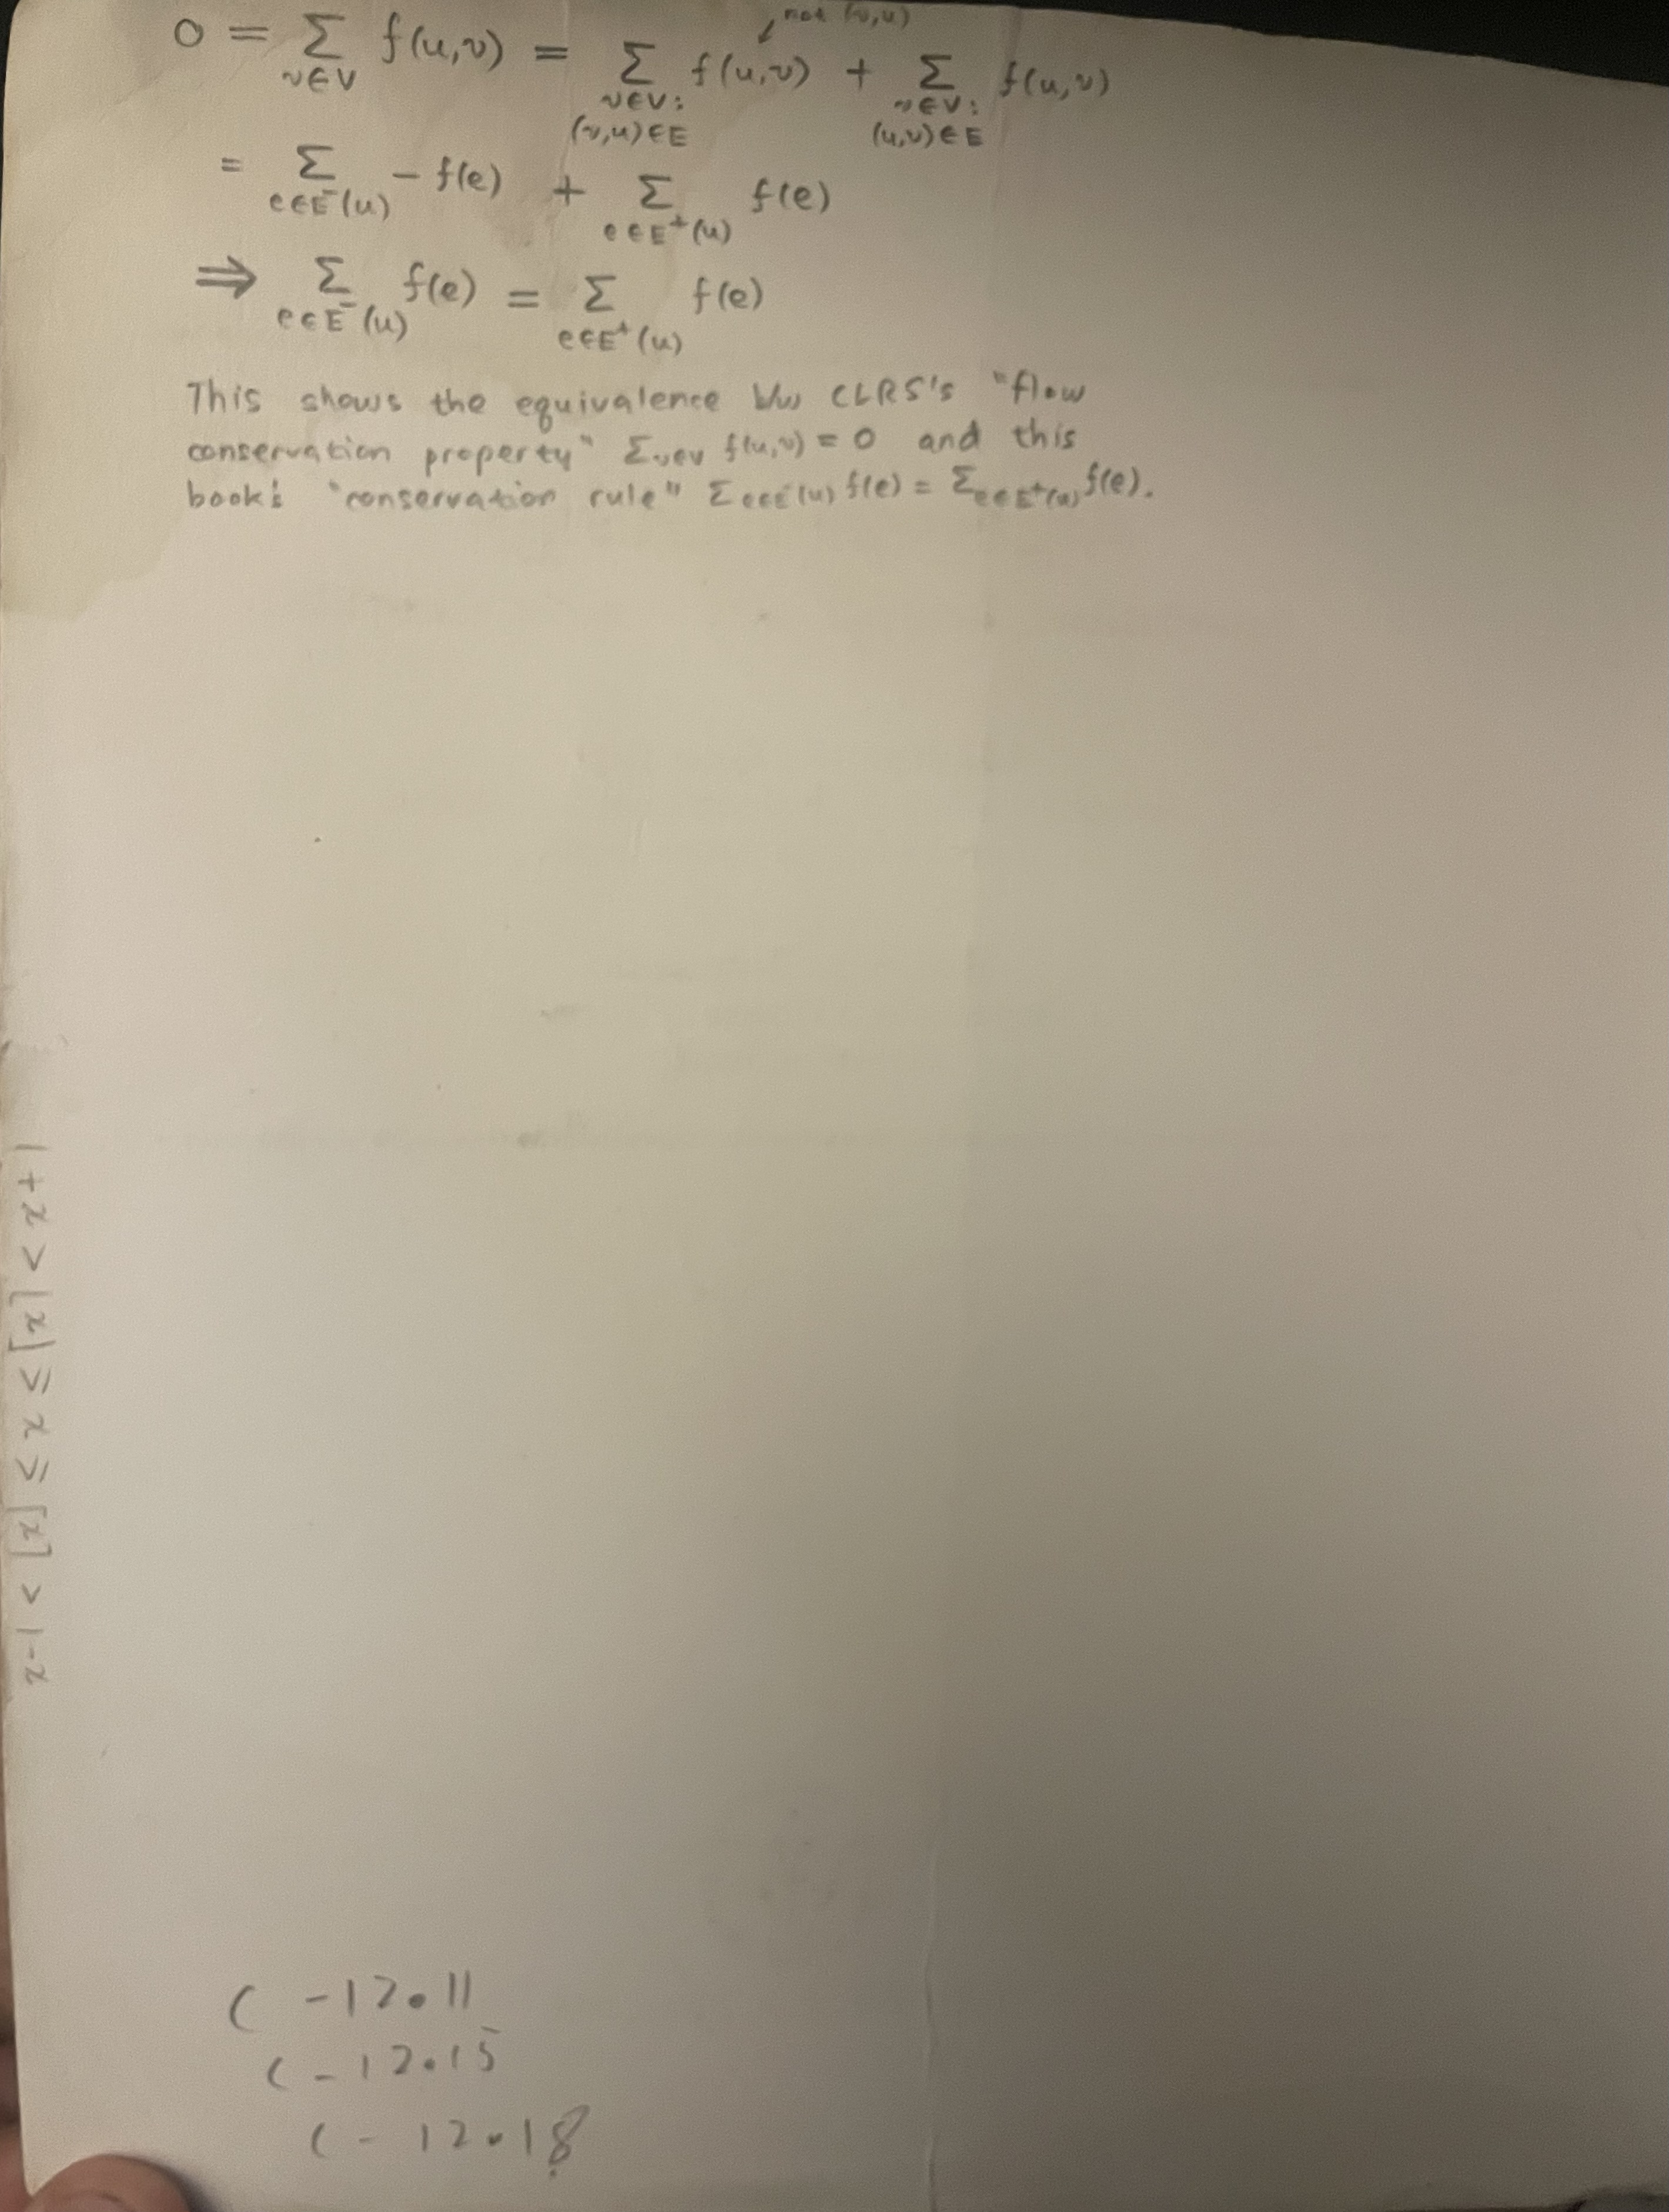 not (v,u)
0 = Σ_{v∈V} f(u,v) = Σ_{v∈V: (v,u)∈E} f(u,v) + Σ_{v∈V: (u,v)∈E} f(u,v)
= Σ_{e∈E⁻(u)} - f(e) + Σ_{e∈E⁺(u)} f(e)
⇒ Σ_{e∈E⁻(u)} f(e) = Σ_{e∈E⁺(u)} f(e)
This shows the equivalence b/w CLRS's "flow
conservation property" Σ_{v∈V} f(u,v) = 0 and this
book's "conservation rule" Σ_{e∈E⁻(u)} f(e) = Σ_{e∈E⁺(u)} f(e).
x-1 < ⌊x⌋ ≤ x ≤ ⌈x⌉ < x+1
( -12.11
( -12.15
( - 12.18